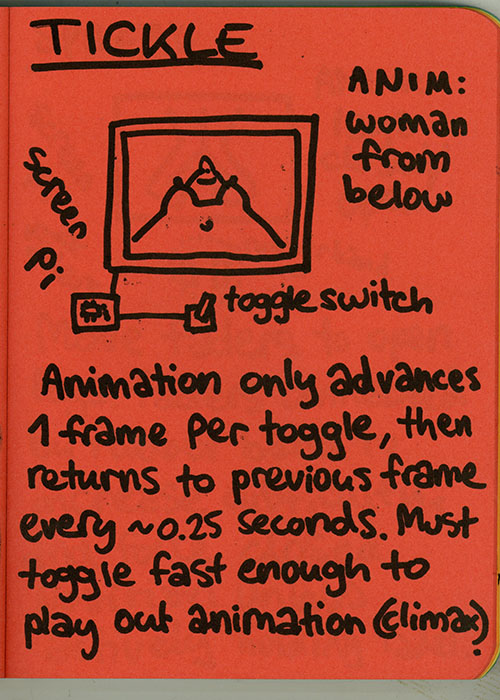 TICKLE
ANIM:
woman
from
below
screen
pi
toggle switch
Animation only advances
1 frame per toggle, then
returns to previous frame
every ~0.25 seconds. Must
toggle fast enough to
play out animation (climax).